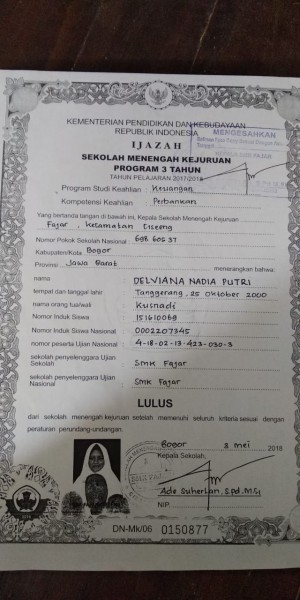 KEMENTERIAN PENDIDIKAN DAN KEBUDAYAAN
REPUBLIK INDONESIA
MENGESAHKAN
IJAZAH
SEKOLAH MENENGAH KEJURUAN
PROGRAM 3 TAHUN
TAHUN PELAJARAN 2017/2018
Program Studi Keahlian : Keuangan
Kompetensi Keahlian : Perbankan
Yang bertanda tangan di bawah ini, Kepala Sekolah Menengah Kejuruan
Fajar, Kecamatan Ciseeng
Nomor Pokok Sekolah Nasional : 698 605 37
Kabupaten/Kota : Bogor
Provinsi : Jawa Barat menerangkan bahwa:
nama DELVIANA NADIA PUTRI
tempat dan tanggal lahir Tanggerang, 25 Oktober 2000
nama orang tua/wali Kusnadi
Nomor Induk Siswa 151610069
Nomor Induk Siswa Nasional 0002207345
nomor peserta Ujian Nasional 4-18-02-13-423-030-3
sekolah penyelenggara Ujian Sekolah Smk Fajar
sekolah penyelenggara Ujian Nasional Smk Fajar
LULUS
dari sekolah menengah kejuruan setelah memenuhi seluruh kriteria sesuai dengan
peraturan perundang-undangan.
Bogor 3 mei 2018
Kepala Sekolah,
Ade Suherlan, S.Pd. M.Si
NIP.
DN-Mk/06 0150877